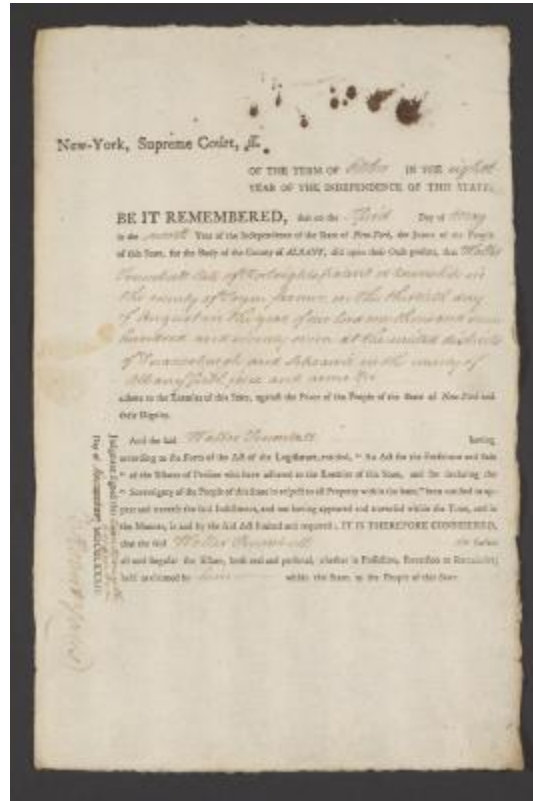 New-York, Supreme Court, ss.
OF THE TERM OF IN THE eighth
YEAR OF THE INDEPENDENCE OF THIS STATE.
BE IT REMEMBERED, that on the Third Day of
in the Year of the Independence of the State of New-York, the Jurors of the People
of this State, for the Body of the County of ALBANY, did upon their Oath present, that Walter
late of in
the county of on the thirtieth day
of August in the year of our Lord one thousand seven
hundred and seventy seven at the united districts
of and Schoharie in the county of
Albany did
adhere to the Enemies of this State, against the Peace of the People of the State of New-York and
their Dignity.
And the said Walter having
according to the Form of the Act of the Legislature, entitled, " An Act for the Forfeiture and Sale
" of the Estates of Persons who have adhered to the Enemies of this State, and for declaring the
" Sovereignty of the People of this State in respect to all Property within the same," been notified to ap-
pear and traverse the said Indictment, and not having appeared and traversed within the Time, and in
the Manner, in and by the said Act limited and required; IT IS THEREFORE CONSIDERED,
that the said Walter do forfeit
all and singular the Estate, both real and personal, whether in Possession, Reversion or Remainder,
held or claimed by him within this State, to the People of this State
Judgment signed this
Day of MDCCLXXXIII